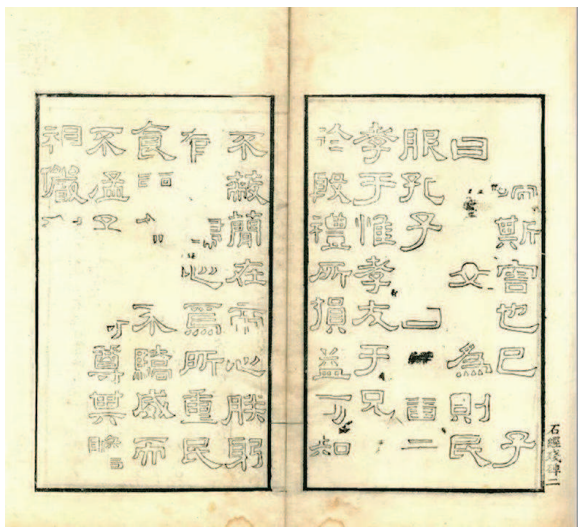 石經殘碑二
斯害也已 子
曰 為則民
服孔子
孝于惟孝友于兄
於殷禮所損益可知
不蔽簡在帝心朕躬
有 心焉所重民
食 不驕威而
不孟 尊其
視儼